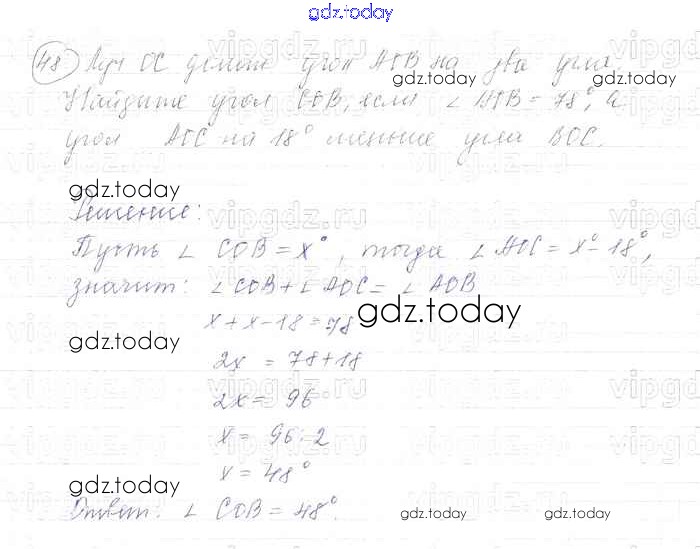 gdz.today
48 Луч OC делит угол AOB на два угла.
Найдите угол COB, если ∠ AOB = 78°, а
угол AOC на 18° меньше угла BOC.
gdz.today
gdz.today
Решение:
Пусть ∠ COB = x°, тогда ∠ AOC = x° - 18°,
значит: ∠ COB + ∠ AOC = ∠ AOB
x + x - 18 = 78
gdz.today
gdz.today
2x = 78 + 18
2x = 96
x = 96 : 2
x = 48°
gdz.today
Ответ: ∠ COB = 48°.
gdz.today
gdz.today
vipgdz.ru